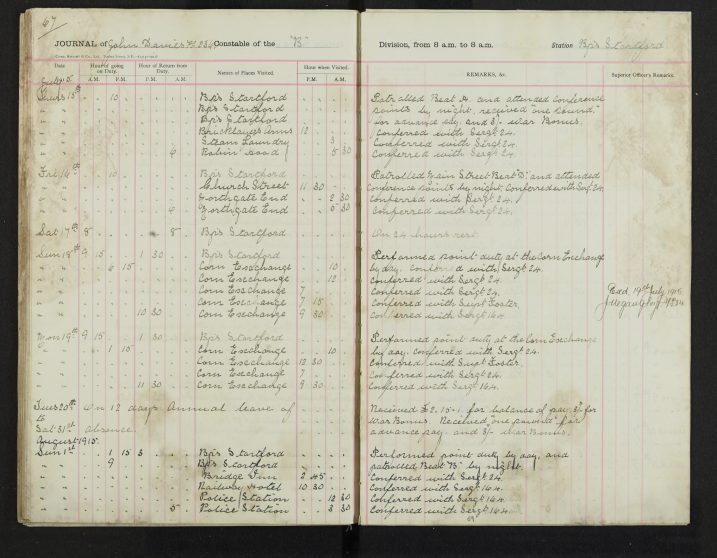 67
JOURNAL of John Davies PC 234 Constable of the "B" Division, from 8 a.m. to 8 a.m. Station Bp's Stortford
Date Hour of going on Duty. Hour of Return from Duty. Names of Places Visited. Hour when Visited. REMARKS, &c. Superior Officer's Remarks.
A.M. P.M. P.M. A.M. P.M. A.M.
July 1915
Thurs 15th " 10 Bp's Stortford Patrolled Beat D. and attended Conference
Bp's Stortford points by night, received "one Pound"
Bp's Stortford for advance pay and 3/- War Bonus.
Bricklayers Arms 12 Conferred with Sergt 24.
Steam Laundry 3 Conferred with Sergt 24.
6 Robin Hood 5 30 Conferred with Sergt 24.
Fri 16th 10 Bp's Stortford Patrolled Main Street Beat D. and attended
Church Street 11 30 Conference points by night. Conferred with Sergt 24
Northgate End 2 30 Conferred with Sergt 24.
6 Northgate End 5 30 Conferred with Sergt 24.
Sat 17th 8 8 Bp's Stortford On 24 hours rest
Sun 18th 9 15 1 30 Bp's Stortford Performed point duty at the Corn Exchange
6 15 Corn Exchange 10 by day. Conferred with Sergt 24.
Corn Exchange 12 Conferred with Sergt 24.
Corn Exchange 7 Conferred with Sergt 24. Exd 19th July 1915
Corn Exchange 7 15 Conferred with Supt Foster.
10 30 Corn Exchange 9 30 Conferred with Sergt 164.
Mon 19th 9 15 1 30 Bp's Stortford Performed point duty at the Corn Exchange
1 15 Corn Exchange 10 by day. Conferred with Sergt 24.
Corn Exchange 12 30 Conferred with Supt Foster.
Corn Exchange 7 Conferred with Sergt 24.
11 30 Corn Exchange 9 30 Conferred with Sergt 164.
Tues 20th On 12 days Annual leave of Received £2.15.1. for balance of pay. 3/- for
to War Bonus. Received "one pound" for
Sat 31st absence. advance pay and 3/- War Bonus.
August 1915.
Sun 1st 1 15 5 Bp's Stortford Performed point duty by day, and
9 Bp's Stortford patrolled Beat "B" by night.
Bridge Inn 2 45 Conferred with Sergt 24.
Railway Hotel 10 30 Conferred with Sergt 164.
Police Station 12 30 Conferred with Sergt 164.
5 Police Station 3 30 Conferred with Sergt 164.